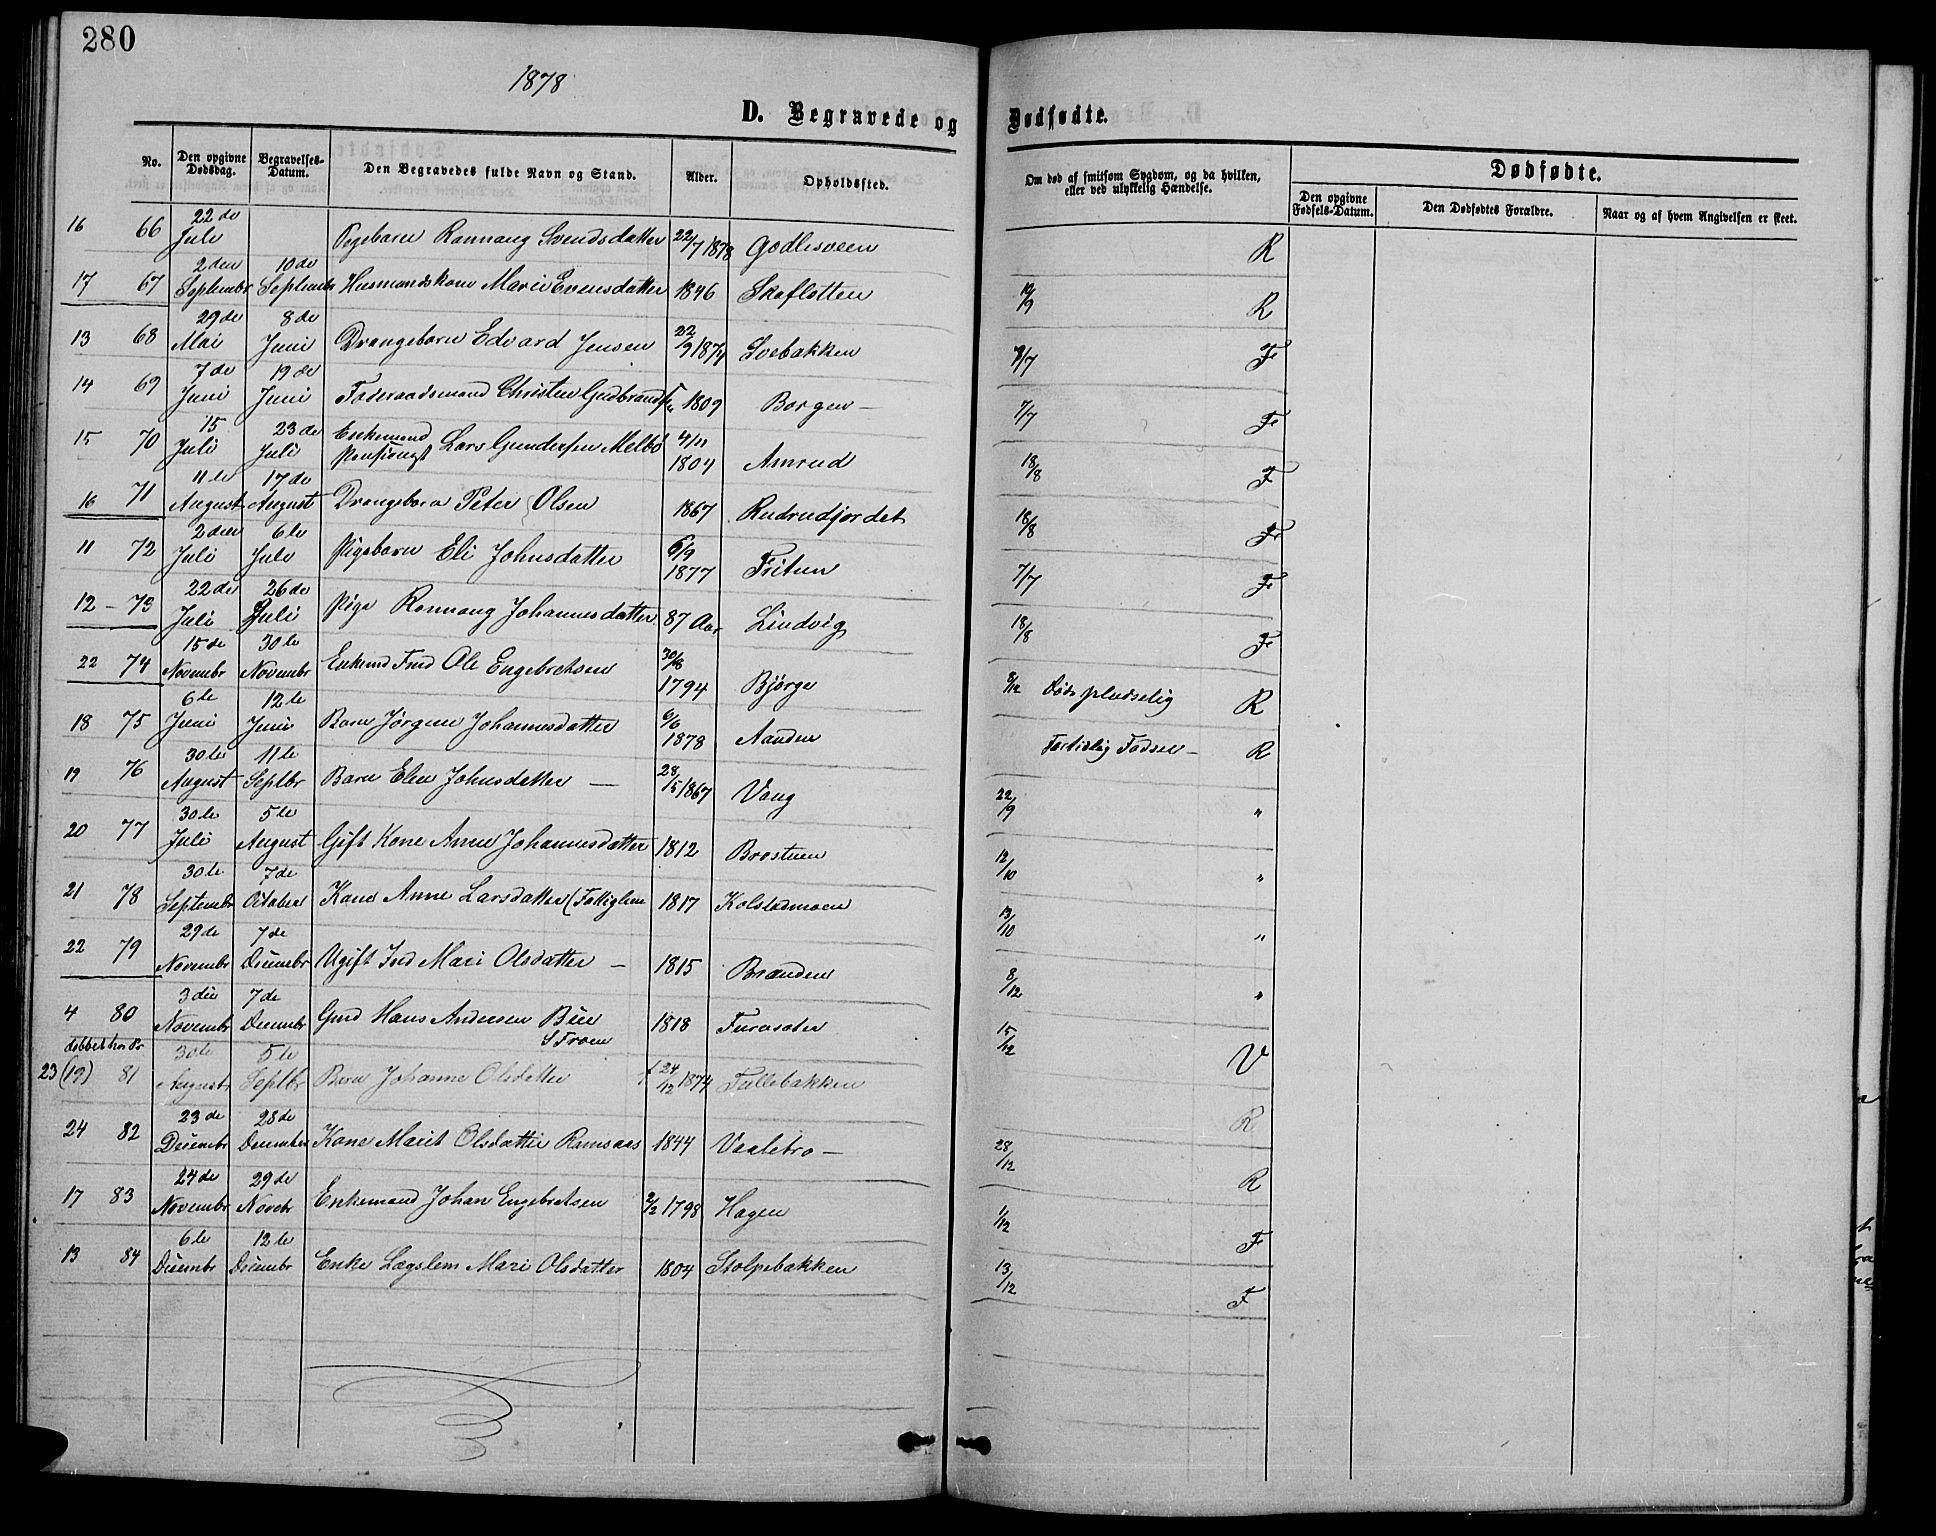 280
1878
D. Begravede og Dødfødte.
No. | Den opgivne Dødsdag. | Begravelses-Datum. | Den Begravedes fulde Navn og Stand. | Alder. | Opholdssted. | Om død af smitsom Sygdom, og da hvilken, eller ved ulykkelig Hændelse. | Dødfødte. | Den opgivne Fødsels-Datum. | Den Dødfødtes Forældre. | Naar og af hvem Angivelsen er skeet.
16 66 | 22de Juli | | Pigebarn Rannaug Svendsdatter | 22/7 1878 | Godlisveen | R
17 67 | 2den Septembr | 10de Septembr | Husmandskone Marie Evensdatter | 1846 | Skaflotten | 10/9 R
13 68 | 29de Mai | 8de Juni | Drengebarn Edvard Jensen | 22/9 1874 | Svebakken | 7/7 F
14 69 | 7de Juni | 19de Juni | Føderaadsmand Christen Gudbrands | 1809 | Borgen – | 7/7 F
15 70 | 15 Juli | 23de Juli | Enkemand Lars Gundersen Melbø | 4/11 1804 | Amrud | 18/8 F
16 71 | 11te August | 17de August | Drengebarn Peter Olsen | 1867 | Rudrudjordet | 18/8 F
11 72 | 2den Juli | 6te Juli | Pigebarn Eli Johnsdatter | 6/9 1877 | Fritun | 7/7 F
12 – 73 | 22de Juli | 26de Juli | Pige Rannaug Johannesdatter | 87 Aar | Lindvig | 18/8 F
22 74 | 15de Novembr | 30te Novembr | Enkemd Ole Engebretsen | 1794 | Bjørge | 8/12 Døde pludselig R
18 75 | 6te Juni | 12te Juni | Barn Jørgine Johannesdatter | 6/6 1878 | Aanden | Fortidlig Fødsel – R
19 76 | 30te August | 11te Septbr | Barn Elen Johnsdatter — | 28/5 1867 | Vang | 22/9 "
20 77 | 30te Juli | 5te August | Gift Kone Anne Johannesdatter | 1812 | Brostuen | 12/10 "
21 78 | 30te Septembr | 7de October | Kone Anne Larsdatter (Fattiglem | 1817 | Kolstadmoen | 13/10 "
22 79 | 29de Novembr | 7de Decembr | Ugift Ind Mari Olsdatter – | 1815 | Brænden | 8/12 "
4 80 | 3die Novembr | 7de Decembr | Gmd Hans Andersen Bue S Fron | 1818 | Furuseter | 15/12 V
23 (19) 81 | 30te August | 5te Septbr | Barn Johanne Olsdatter | 24/12 1874 | Tullebakken | R
24 82 | 23de Decembr | 28de December | Kone Marit Olsdatter Ramsaas | 1844 | Vaalebro – | 28/12 R
17 83 | 24de Novembr | 29de Novbr | Enkemand Johan Engebretsen | 2/2 1798 | Hagen | 1/12 F
13 84 | 6te Decembr | 12te Decembr | Enke Lægslem Mari Olsdatter | 1804 | Stolpebakken | 13/12 F